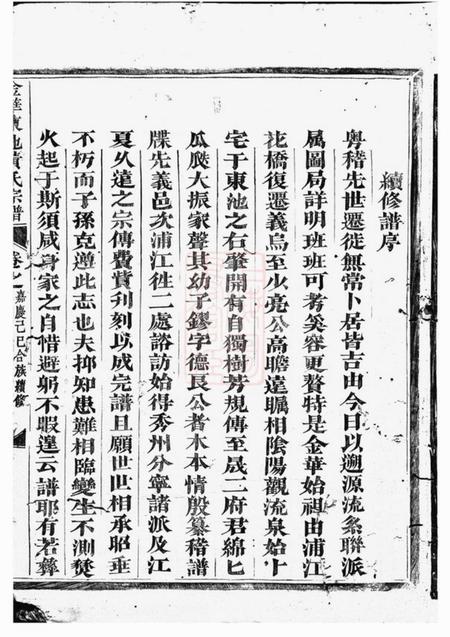 續修譜序
粵稽先世遷徙無常卜居皆吉由今日以遡源流条聯派
属圖局詳明班班可考奚容更贅特是金華始祖由浦江
花橋復遷義烏至少亮公高瞻遠矚相陰陽觀流泉始卜
宅于東池之右肇開有自獨樹芳規傳至晟二府君綿匕
瓜瓞大振家聲其幼子鏐字德長公者木本情殷纂稽譜
牒先義邑次浦江徃二處諮訪始得秀州分寧諸派及江
夏久遠之宗傳費貲刋刻以成完譜且願世世相承昭垂
不朽而子孫克遵此志也夫抑知患難相臨變生不測焚
火起于斯須咸身家之自惜避躬不暇遑云譜耶有若彝
金華東池黃氏宗譜
卷之
嘉慶己巳合族續修